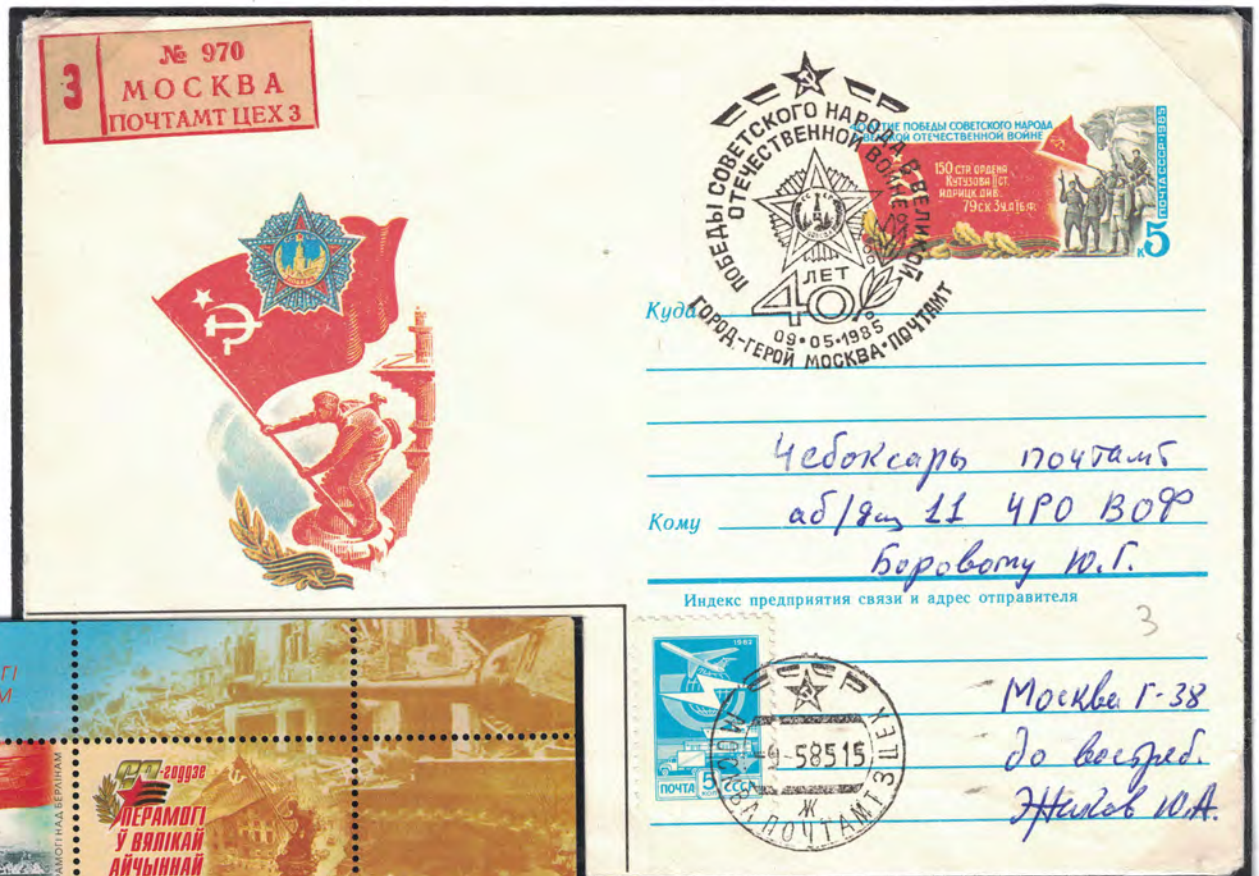 № 970
3
МОСКВА
ПОЧТАМТ ЦЕХ 3
СССР
ПОБЕДЫ СОВЕТСКОГО НАРОДА В ВЕЛИКОЙ
ОТЕЧЕСТВЕННОЙ ВОЙНЕ
ЛЕТ
40
09•05•1985
ГОРОД-ГЕРОЙ МОСКВА•ПОЧТАМТ
40-ЛЕТИЕ ПОБЕДЫ СОВЕТСКОГО НАРОДА
В ВЕЛИКОЙ ОТЕЧЕСТВЕННОЙ ВОЙНЕ
150 СТР ОРДЕНА
КУТУЗОВА II СТ.
ИДРИЦК. ДИВ.
79 С.К. 3 У.А. I Б.Ф.
ПОЧТА СССР•1985
К 5
Куда
Чебоксары почтамт
Кому
аб/ящ 11 ЧРО ВОФ
Боровому Ю.Г.
Индекс предприятия связи и адрес отправителя
3
1982
ПОЧТА 5 КОП СССР
СССР
-9-58515
Ж
МОСКВА ПОЧТАМТ 3 ЦЕХ
Москва Г-38
до востреб.
Ю.А.
-годдзе
ПЕРАМОГІ
Ў ВЯЛІКАЙ
АЙЧЫННАЙ
АМОГІ НАД БЕРЛІНАМ